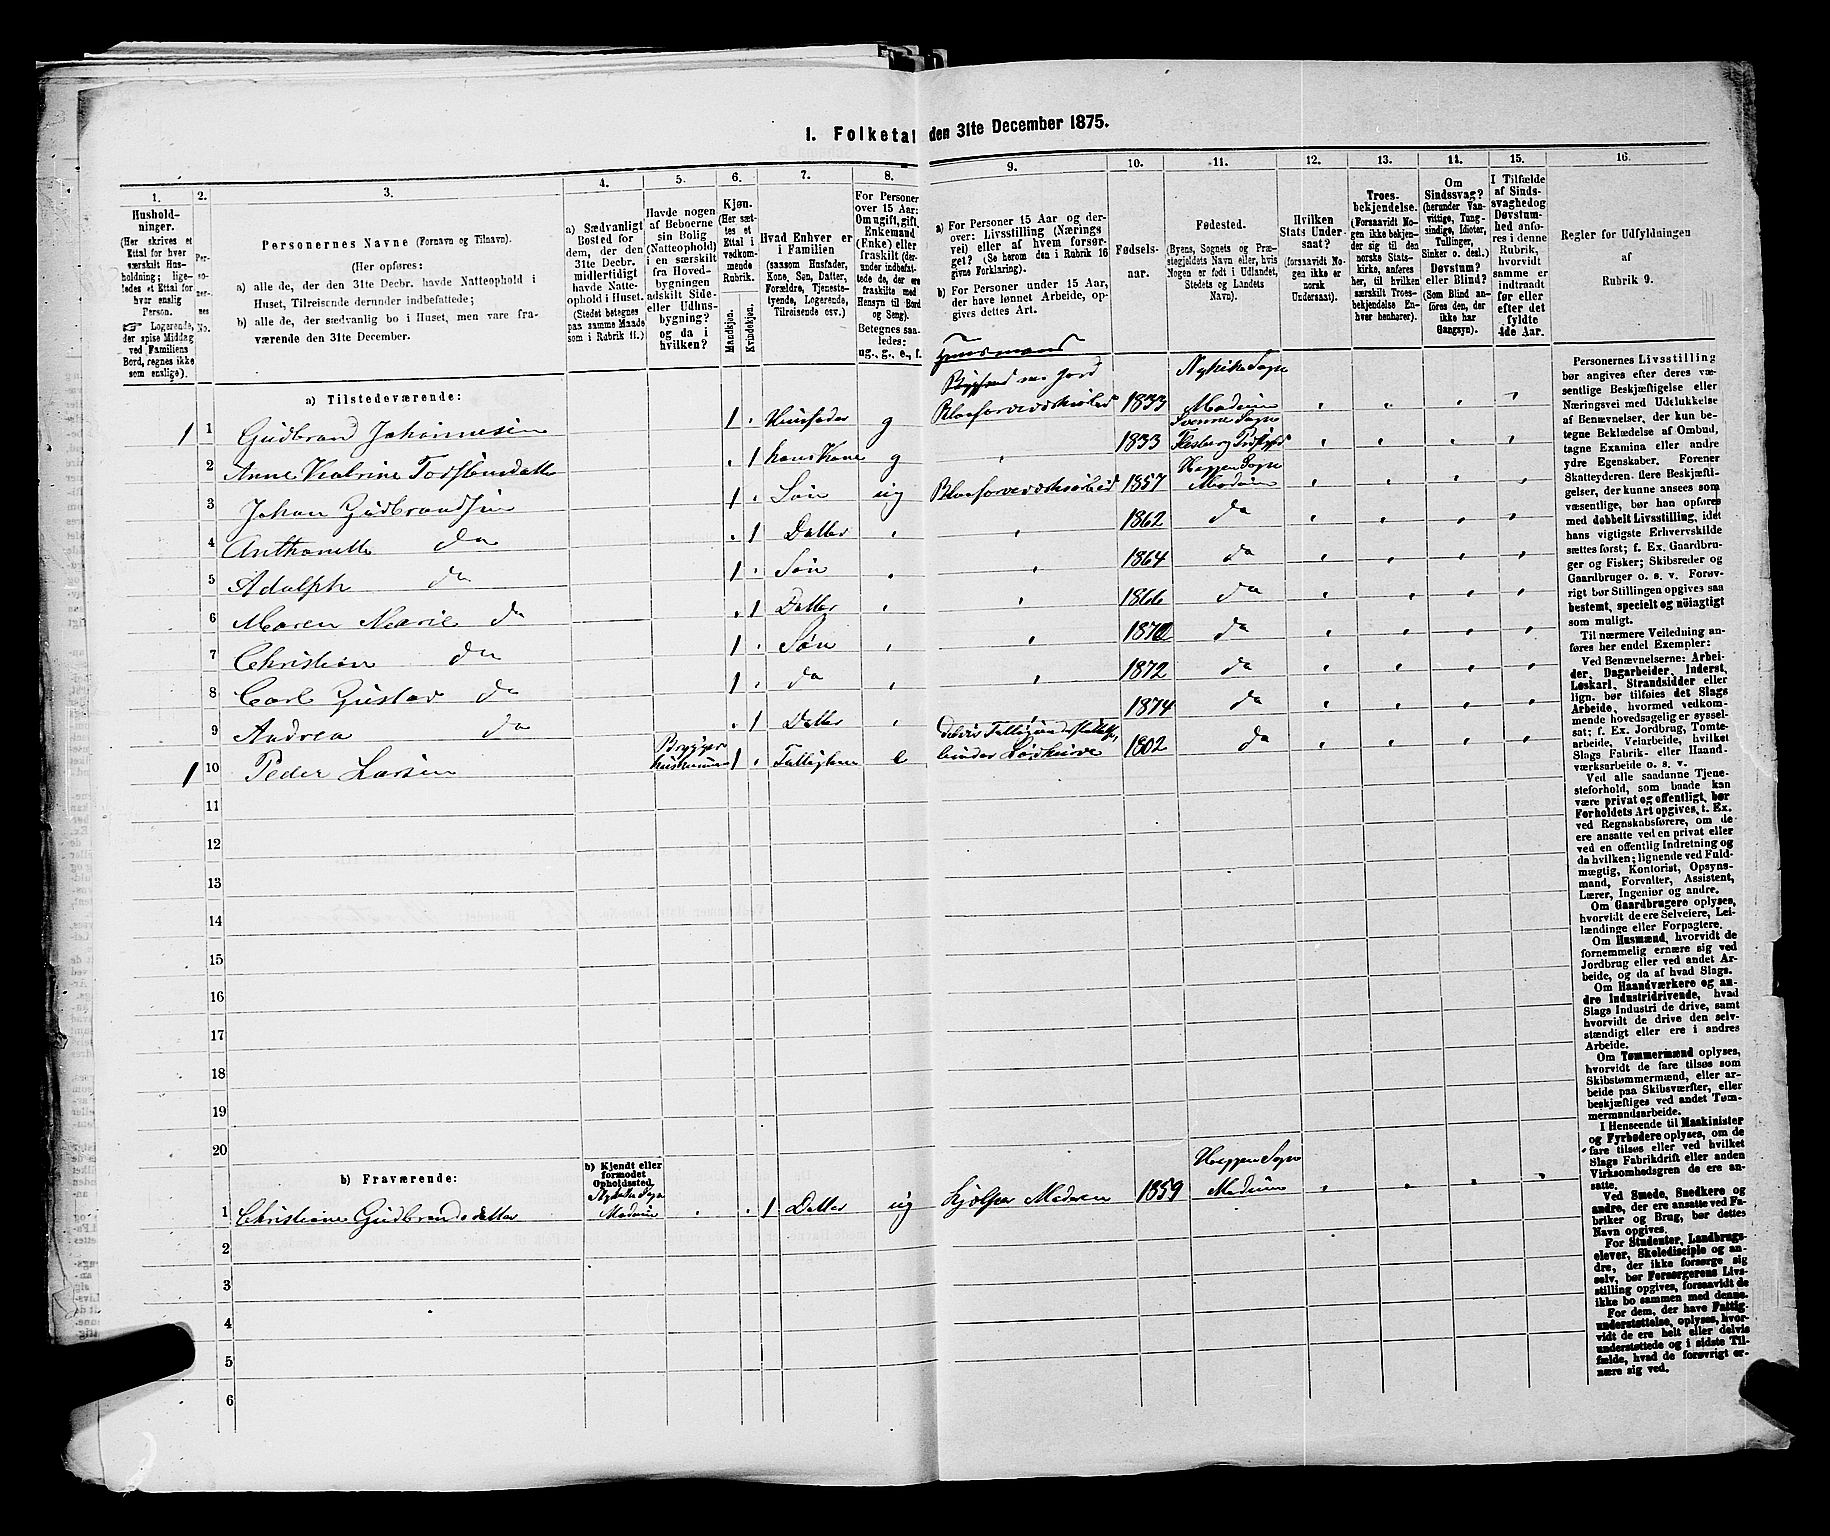 I. Folketal den 31te December 1875.
1.
Hushold-
ninger.
(Her skrives et
Ettal for hver
særskilt Hus-
holdning; lige-
ledes et Ettal
for hver
enslig
Person.
☞ Logerende,
der spise Middag
ved Familiens
Bord, regnes ikke
som enslige).
2.
Per-
so-
ner-
nes
No.
3.
Personernes Navne (Fornavn og Tilnavn).
(Her opføres:
a) alle de, der den 31te Decbr. havde Natteophold i
Huset, Tilreisende derunder indbefattede;
b) alle de, der sædvanlig bo i Huset, men vare fra-
værende den 31te December.
4.
a) Sædvanligt
Bosted for
dem, der den
31te Decbr.
midlertidigt
havde Natte-
ophold i Huset.
(Stedet betegnes
paa samme Maade
som i Rubrik 11.)
5.
Havde nogen
af Beboerne
sin Bolig
(Natteophold)
i en særskilt
fra Hoved-
bygningen
adskilt Side-
eller Udhus-
bygning?
og da i
hvilken?
6.
Kjøn.
(Her sæt-
tes et
Ettal i
vedkom-
mende
Rubrik.
Mandkjøn.
Kvindekjøn.
7.
Hvad Enhver er
i Familien
(saasom Husfader,
Kone, Søn, Datter,
Forældre, Tjeneste-
tyende, Logerende,
Tilreisende osv.)
8.
For Personer
over 15 Aar:
Om ugift, gift,
Enkemand
(Enke) eller
fraskilt (der-
under indbefat-
tede de, der ere
fraskilte med
Hensyn til Bord
og Seng).
Betegnes saa-
ledes:
ug., g., e., f.
9.
a) For Personer 15 Aar og der-
over: Livsstilling (Nærings
vei) eller af hvem forsør-
get? (Se herom den i Rubrik 16
givne Forklaring).
b) For Personer under 15 Aar,
der have lønnet Arbeide, op-
gives dettes Art.
10.
Fødsels-
aar.
11.
Fødested.
(Byens, Sognets og Præ-
stegjeldets Navn, eller, hvis
Nogen er født i Udlandet,
Stedets og Landets
Navn).
12.
Hvilken
Stats Under-
saat?
(forsaavidt No-
gen ikke er
norsk
Undersaat).
13.
Troes-
bekjendelse.
(Forsaavidt No-
gen ikke bekjen-
der sig til den
norske Stats-
kirke, anføres
her, til hvilken
særskilt Troes-
bekjendelse En-
hver henhører).
14.
Om
Sindssvag?
(herunder Van-
vittige, Tung-
sindige, Idioter,
Tullinger,
Sinker o. desl.)
Døvstum?
eller Blind?
(Som Blind an-
føres den, der
ikke har
Gangsyn).
15.
I Tilfælde
af Sinds-
svaghed og
Døvstum-
hed anfø-
res i denne
Rubrik,
hvorvidt
samme er
indtraadt
før eller
efter det
fyldte
4de Aar.
16.
Regler for Udfyldningen
af
Rubrik 9.
a) Tilstedeværende:
Huusmand
m. Jord
1 1 Gudbrand Johannesen 1 Huusfader g 1833 Nykirke Sogn Modum
2 Anne Katrine Torstensdatter 1 hans Kone g 1833 Sogn
3 Johan Gudbrandsen 1 Søn ug 1857 Heggen Sogn Modum
4 Anthonette do 1 Datter 1862 do
5 Adolph do 1 Søn 1864 do
6 Maren Marie do 1 Datter 1866 do
7 Christian do 1 Søn 1870 do
8 Carl Gustav do 1 do 1872 do
9 Andrea do 1 Datter 1874 do
1 10 Peder Larsen 1 e 1802 do
11
12
13
14
15
16
17
18
19
20
b) Fraværende:
b) Kjendt eller
formodet
Opholdssted.
1 Christiane Gudbrandsdatter Nykirke Sogn Modum 1 Datter ug hjælper Moderen 1859 Heggen Sogn Modum
2
3
4
5
6
Personernes Livsstilling
bør angives efter deres væ-
sentlige Beskjæftigelse eller
Næringsvei med Udelukkelse
af Benævnelser, der kun be-
tegne Beklædelse af Ombud,
tagne Examina eller andre
ydre Egenskaber. Forener
Skatteyderen flere Beskjæfti-
gelser, der kunne ansees som
væsentlige, bør han opføres
med dobbelt Livsstilling, idet
hans vigtigste Erhvervskilde
sættes først; f. Ex. Gaardbru-
ger og Fisker; Skibsreder og
Gaardbruger o. s. v. Forøv-
rigt bør Stillingen opgives saa
bestemt, specielt og nøiagtig
som muligt.
Til nærmere Veiledning an-
føres her endel Exempler:
Ved Benævnelserne: Arbei-
der, Dagarbeider, Inderst,
Løskarl, Strandsidder eller
lign. bør tilføies det Slags
Arbeide, hvormed vedkom-
mende hovedsagelig er syssel-
sat; f. Ex. Jordbrug, Tomte-
arbeide, Veiarbeide, hvilket
Slags Fabrik- eller Haand-
værksarbeide o. s. v.
Ved alle saadanne Tjene-
steforhold, som baade kan
være privat og offentligt, bør
Forholdets Art opgives, t. Ex.
ved Regnskabsførere, om de
ere ansatte ved en privat eller
ved en offentlig Indretning og
da hvilken; lignende ved Fuld-
mægtig, Kontorist, Opsyns-
mand, Forvalter, Assistent,
Lærer, Ingeniør og andre.
Om Gaardbrugere oplyses,
hvorvidt de ere Selveiere, Lei-
lændinge eller Forpagtere.
Om Husmænd, hvorvidt de
fornemmelig ernære sig ved
Jordbrug eller ved andet Ar-
beide, og da af hvad Slags.
Om Haandværkere og an-
dre Industridrivende, hvad
Slags Industri de drive, samt
hvorvidt de drive den selv-
stændigt eller ere i andres
Arbeide.
Om Tømmermænd oplyses,
hvorvidt de fare tilsøs som
Skibstømmermænd, eller ar-
beide paa Skibsværfter, eller
beskjæftiges ved andet Tøm-
mermandsarbeide.
I Henseende til Maskinister
og Fyrbødere oplyses, om de
fare tilsøs eller ved hvilket
Slags Fabrikdrift eller anden
Virksomhedsgren de ere an-
satte.
Ved Smede, Snedkere og
andre, der ere ansatte ved Fa-
briker og Brug, bør dettes
Navn opgives.
For Studenter, Landbrugs-
elever, Skoledisciple og an-
dre, der ikke forsørge sig
selv, bør Forsørgerens Livs-
stilling opgives, forsaavidt de
ikke bo sammen med denne.
For dem, der have Fattig-
understøttelse, oplyses, hvor-
vidt de ere helt eller delvis
understøttede og i sidste Til-
fælde, hvad de forøvrigt er-
nære sig ved.